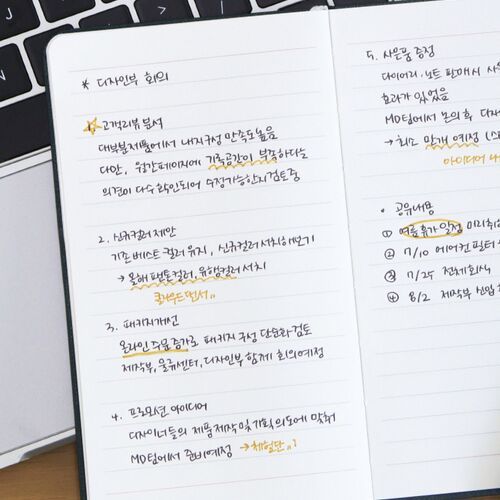 * 디자인부 회의
1. 고객리뷰 분석
대부분 제품에서 내지구성 만족도 높음
다만, 월간페이지에 기록공간이 부족하다는
의견이 다수 확인되어 수정가능한지 검토중
2. 신규컬러 제안
기존 베스트 컬러 유지, 신규컬러 서치해보기
→ 올해 팬톤컬러, 유행컬러 서치
클라우드 댄서..
3. 패키지개선
온라인 주문 증가로 패키지 구성 단순화 검토
제작부, 물류센터, 디자인부 함께 회의예정
4. 프로모션 아이디어
디자이너들의 제품 제작 및 기획의도에 맞춰
MD팀에서 준비예정 → 체험단..!
5. 사은품 증정
다이어리, 노트 판매시 사
효과가 있었음
MD팀에서 논의 후 다
→ 최소
예정
아이디어
• 공유내용
① 여름 휴가 일정 미리
② 7/10 에어컨 필터
③ 7/25 전체회식
④ 8/2 제작부 신입